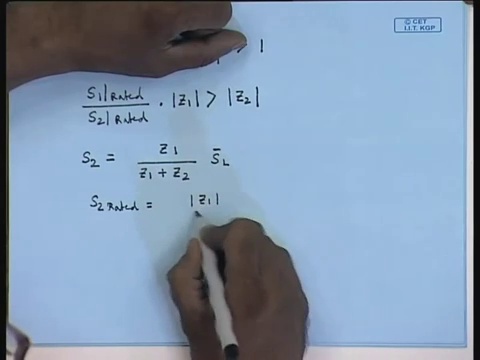 © CET
I.I.T. KGP
> 1
S₁|Rated / S₂|Rated · |Z₁| > |Z₂|
S₂ = Z₁ / (Z₁ + Z₂) S̄_L
S₂ Rated = |Z₁|